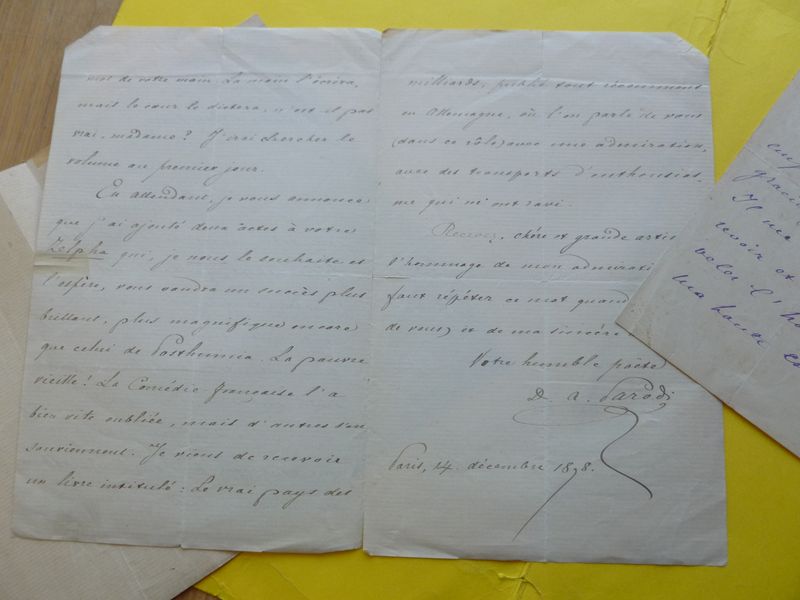 mot de votre main. La main l'écrira,
mais le cœur le dictera, n'est-il pas
vrai, madame? J'irai chercher le
volume au premier jour.
En attendant, je vous annonce
que j'ai ajouté deux actes à votre
Zelpha qui, je nous le souhaite et
l'espère, vous vaudra un succès plus
brillant, plus magnifique encore
que celui de Posthumia. La pauvre
vieille! La Comédie française l'a
bien vite oubliée, mais d'autres s'en
souviennent. Je viens de recevoir
un livre intitulé: Le vrai pays des
milliards, publié tout récemment
en Allemagne, où l'on parle de vous
(dans ce rôle) avec une admiration,
avec des transports d'enthousias-
me qui m'ont ravi.
Recevez, chère et grande artis
l'hommage de mon admiratio
faut répéter ce mot quand
de vous) et de ma sincère
Votre humble poète
D. A. Parodi
Paris, 14 décembre 1878.
gracie
Il me
revoir et
voler l'h
ma bande